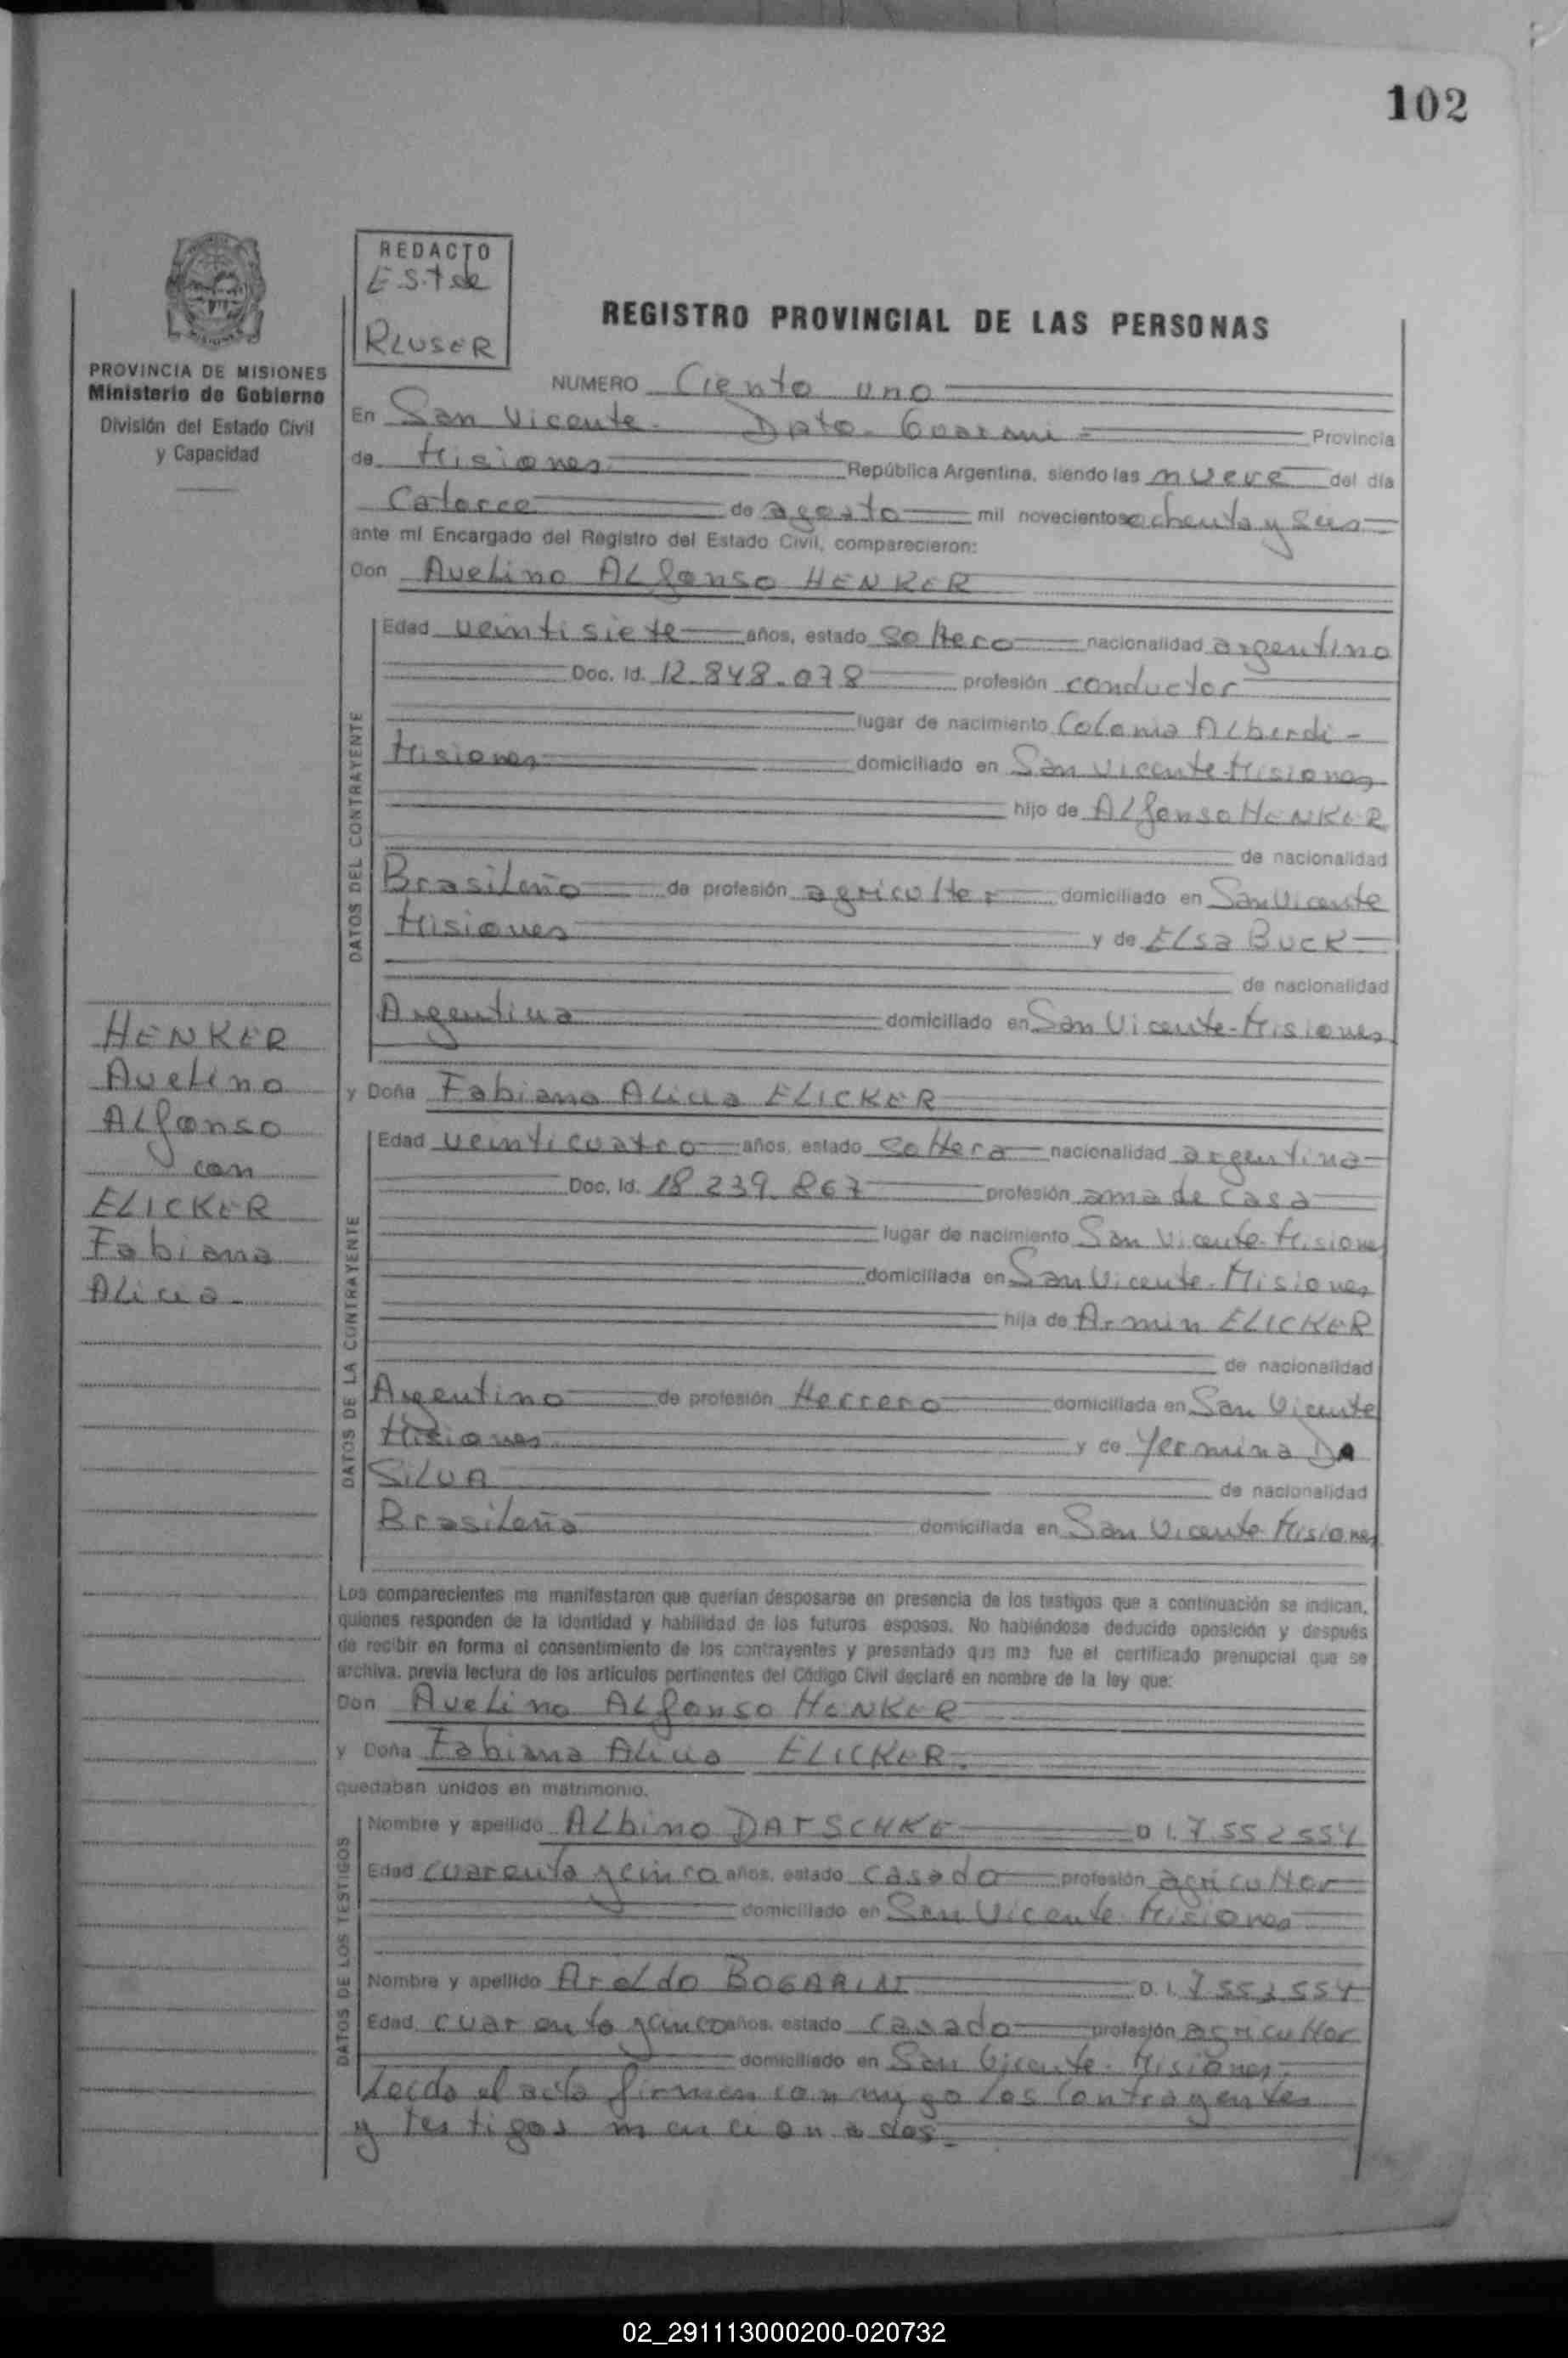 102
REDACTO
E.S.T de
RLUSER
REGISTRO PROVINCIAL DE LAS PERSONAS
PROVINCIA DE MISIONES
Ministerio de Gobierno
División del Estado Civil
y Capacidad
NUMERO Ciento uno
En San Vicente - Dpto. Guarani - Provincia
de Misiones República Argentina, siendo las nueve del día
Catorce de agosto mil novecientos ochenta y seis
ante mí Encargado del Registro del Estado Civil, comparecieron:
Don Avelino ALfonso HENKER
DATOS DEL CONTRAYENTE
Edad veintisiete años, estado soltero nacionalidad argentino
Doc. Id. 12.848.078 profesión conductor
lugar de nacimiento Colonia ALberdi -
Misiones domiciliado en San Vicente-Misiones
hijo de ALfonso HENKER
de nacionalidad
BrasiLeño de profesión agricultor domiciliado en San Vicente
Misiones y de ELsa BUCK
de nacionalidad
Argentina domiciliado en San Vicente-Misiones
HENKER
AveLino
ALfonso
con
ELICKER
Fabiana
ALicia -
y Doña Fabiana ALicia ELICKER
DATOS DE LA CONTRAYENTE
Edad veinticuatro años, estado soltera nacionalidad argentina
Doc. Id. 18.239.867 profesión ama de casa
lugar de nacimiento San Vicente-Misiones
domiciliada en San Vicente-Misiones
hija de Armin ELICKER
de nacionalidad
Argentino de profesión Herrero domiciliada en San Vicente
Misiones y de Yermina DA
SILVA de nacionalidad
BrasiLeña domiciliada en San Vicente-Misiones
Los comparecientes me manifestaron que querían desposarse en presencia de los testigos que a continuación se indican,
quienes responden de la identidad y habilidad de los futuros esposos. No habiéndose deducido oposición y después
de recibir en forma el consentimiento de los contrayentes y presentado que me fue el certificado prenupcial que se
archiva, previa lectura de los artículos pertinentes del Código Civil declaré en nombre de la ley que:
Don AveLino ALfonso HENKER
y Doña Fabiana ALicia ELICKER.
quedaban unidos en matrimonio.
DATOS DE LOS TESTIGOS
Nombre y apellido ALbino DATSCHKE D.I. 7.552554
Edad cuarenta y cinco años, estado casado profesión agricultor
domiciliado en San Vicente-Misiones
Nombre y apellido AroLdo BOGARIN D.I. 7552554
Edad cuarenta y cinco años, estado casado profesión agricultor
domiciliado en San Vicente-Misiones.
Leida el acta firman conmygo los contrayentes
y testigos mencionados.-
02_291113000200-020732